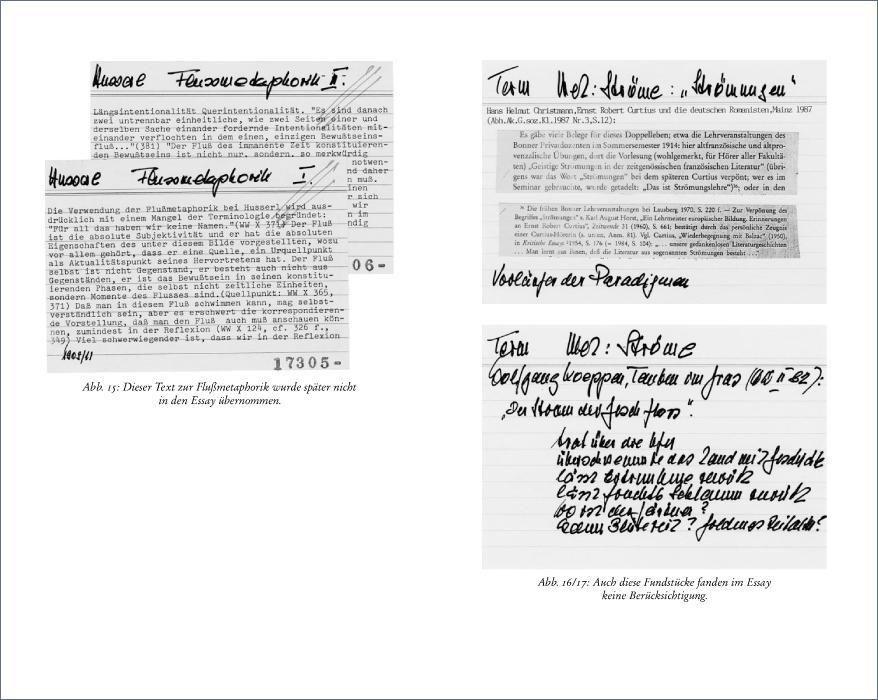 Husserl Flussmetaphorik II.
Längsintentionalität Querintentionalität. "Es sind danach
zwei untrennbar einheitliche, wie zwei Seiten einer und
derselben Sache einander fordernde Intentionalitäten mit-
einander verflochten in dem einen, einzigen Bewußtseins-
fluß..."(381) "Der Fluß des immanente Zeit konstituieren-
den Bewußtseins ist nicht nur, sondern, so merkwürdig
notwen-
nd daher
n muß.
inen
r sich
wir
n im
ndig
06-
Husserl Flussmetaphorik I.
Die Verwendung der Flußmetaphorik bei Husserl wird aus-
drücklich mit einem Mangel der Terminologie begründet:
"Für all das haben wir keine Namen."(WW X 371) Der Fluß
ist die absolute Subjektivität und er hat die absoluten
Eigenschaften des unter diesem Bilde vorgestellten, wozu
vor allem gehört, dass er eine Quelle, ein Urquellpunkt
als Aktualitätspunkt seines Hervortretens hat. Der Fluß
selbst ist nicht Gegenstand, er besteht auch nicht aus
Gegenständen, er ist das Bewußtsein in seinen konstitu-
ierenden Phasen, die selbst nicht zeitliche Einheiten,
sondern Momente des Flusses sind.(Quellpunkt: WW X 365,
371) Daß man in diesem Fluß schwimmen kann, mag selbst-
verständlich sein, aber es erschwert die korrespondieren-
de Vorstellung, daß man den Fluß auch muß anschauen kön-
nen, zumindest in der Reflexion (WW X 124, cf. 326 f.,
349) Viel schwerwiegender ist, dass wir in der Reflexion
17305-
Abb. 15: Dieser Text zur Flußmetaphorik wurde später nicht
in den Essay übernommen.
Term Met: Ströme: „Strömungen"
Hans Helmut Christmann, Ernst Robert Curtius und die deutschen Romanisten, Mainz 1987
(Abh.Ak.G.soz.Kl.1987 Nr.3,S.12):
Es gäbe viele Belege für dieses Doppelleben; etwa die Lehrveranstaltungen des
Bonner Privatdozenten im Sommersemester 1914: hier altfranzösische und altpro-
venzalische Übungen, dort die Vorlesung (wohlgemerkt, für Hörer aller Fakultä-
ten) „Geistige Strömungen in der zeitgenössischen französischen Literatur" (übri-
gens war das Wort "Strömungen" bei dem späteren Curtius verpönt; wer es im
Seminar gebrauchte, wurde getadelt: „Das ist Strömungslehre")³⁰; oder in den
³⁰ Die frühen Bonner Lehrveranstaltungen bei Lausberg 1970, S. 220 f. – Zur Verpönung des
Begriffes „Strömungen" s. Karl August Horst, „Ein Lehrmeister europäischer Bildung. Erinnerungen
an Ernst Robert Curtius", Zeitwende 31 (1960), S. 661; bestätigt durch das persönliche Zeugnis
einer Curtius-Hörerin (s. unten, Anm. 81). Vgl. Curtius, „Wiederbegegnung mit Balzac", (1950),
in Kritische Essays ²1954, S. 176 (= 1984, S. 104): „... unsere gedankenlosen Literaturgeschichten
... Man lernt aus ihnen, daß die Literatur aus sogenannten Strömungen besteht ..."
Vorläufer der Paradigmen
Term Met: Ströme
Wolfgang Koeppen, Tauben im Gras (WW II 82):
„Der Strom der Geschichte floss".
trat über die Ufer
überschwemmte das Land mit Geschichte
lässt Ertrunkene zurück
lässt Schlamm zurück
Abb. 16/17: Auch diese Fundstücke fanden im Essay
keine Berücksichtigung.